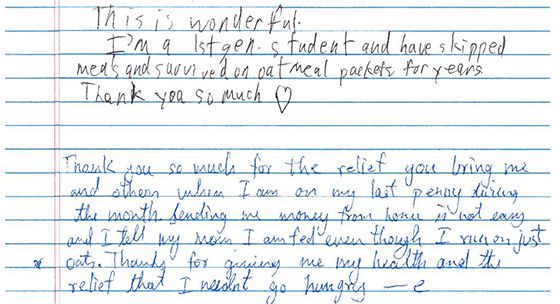 This is wonderful.
I'm a 1st gen. student and have skipped
meals and survived on oatmeal packets for years.
Thank you so much ♡
Thank you so much for the relief you bring me
and others when I am on my last penny during
the month. Sending me money from home is not easy
and I tell my mom I am fed even though I run on just
oats. Thanks for giving me my health and the
relief that I needn't go hungry — e